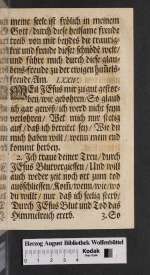 meine seele ist frölich in meinem
Gott/ durch diese heilsame freude
treib von mir beydes die traurig-
keit und freude dieser schnöde welt/
und führe mich durch diese glau-
bens-freude zu der ewigen himels-
freude. Am. LXXXIV.
JEsus mit zu gut gestor-
ben/wie geboren/So glaub
ich gar getrost/ich werd nicht seyn
verlohren/ Weck mich nur stetig
auf/ daß ich bereitet sey/ Wie du
mich haben wilt/ wenn mein end
kommt herbey.
2. Ich traue deiner Treu/durch
JEsus Blutvergiessen / Und will
auch weder zeit noch ort zum tod
ausschliessen/ Kom/ wenn/wie/wo
du willt/ nur daß ich selig sterb/
Durch JEsus Blut und Tod das
Himmelreich ererb. 3. So
Herzog August Bibliothek Wolfenbüttel
Kodak